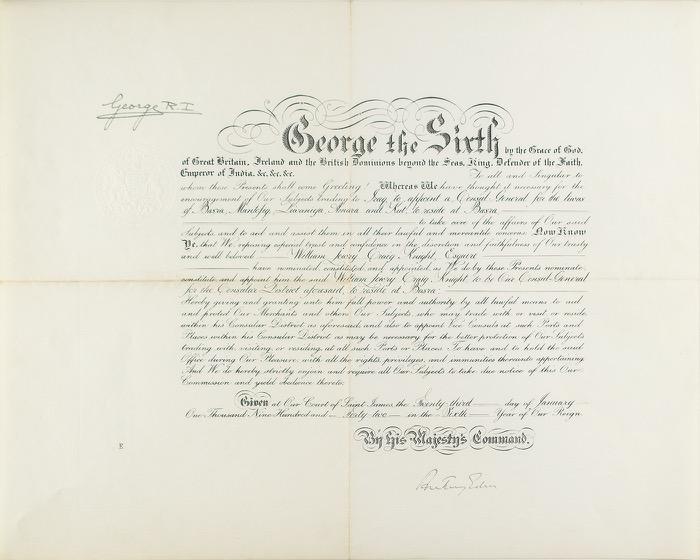 George R.I
George the Sixth by the Grace of God,
of Great Britain, Ireland and the British Dominions beyond the Seas, King, Defender of the Faith,
Emperor of India, &c, &c, &c. To all and Singular to
whom these Presents shall come Greeting! Whereas We have thought it necessary for the
encouragement of Our Subjects trading to Iraq to appoint a Consul General for the liwas
of Basra, Muntafiq, Amara and Kut, to reside at Basra
to take care of the affairs of Our said
Subjects and to aid and assist them in all their lawful and mercantile concerns: Now Know
Ye, that We, reposing especial trust and confidence in the discretion and faithfulness of Our trusty
and well beloved William Craig Knight, Esquire
have nominated, constituted and appointed, as We do by these Presents nominate,
constitute and appoint him the said William Craig Knight, to be Our Consul-General
for the Consular District aforesaid, to reside at Basra:
Hereby giving and granting unto him full power and authority by all lawful means to aid
and protect Our Merchants and others Our Subjects, who may trade with or visit or reside
within his Consular District as aforesaid, and also to appoint Vice Consuls at such Ports and
Places within his Consular District as may be necessary for the better protection of Our Subjects
trading with, visiting, or residing, at all such Ports or Places. To have and to hold the said
Office during Our Pleasure, with all the rights, privileges, and immunities thereunto appertaining.
And We do hereby strictly enjoin and require all Our Subjects to take due notice of this Our
Commission and yield obedience thereto.
Given at Our Court of Saint James, the Twenty-third day of January
One Thousand Nine Hundred and Forty two in the Sixth Year of Our Reign.
By His Majesty's Command.
E
Anthony Eden